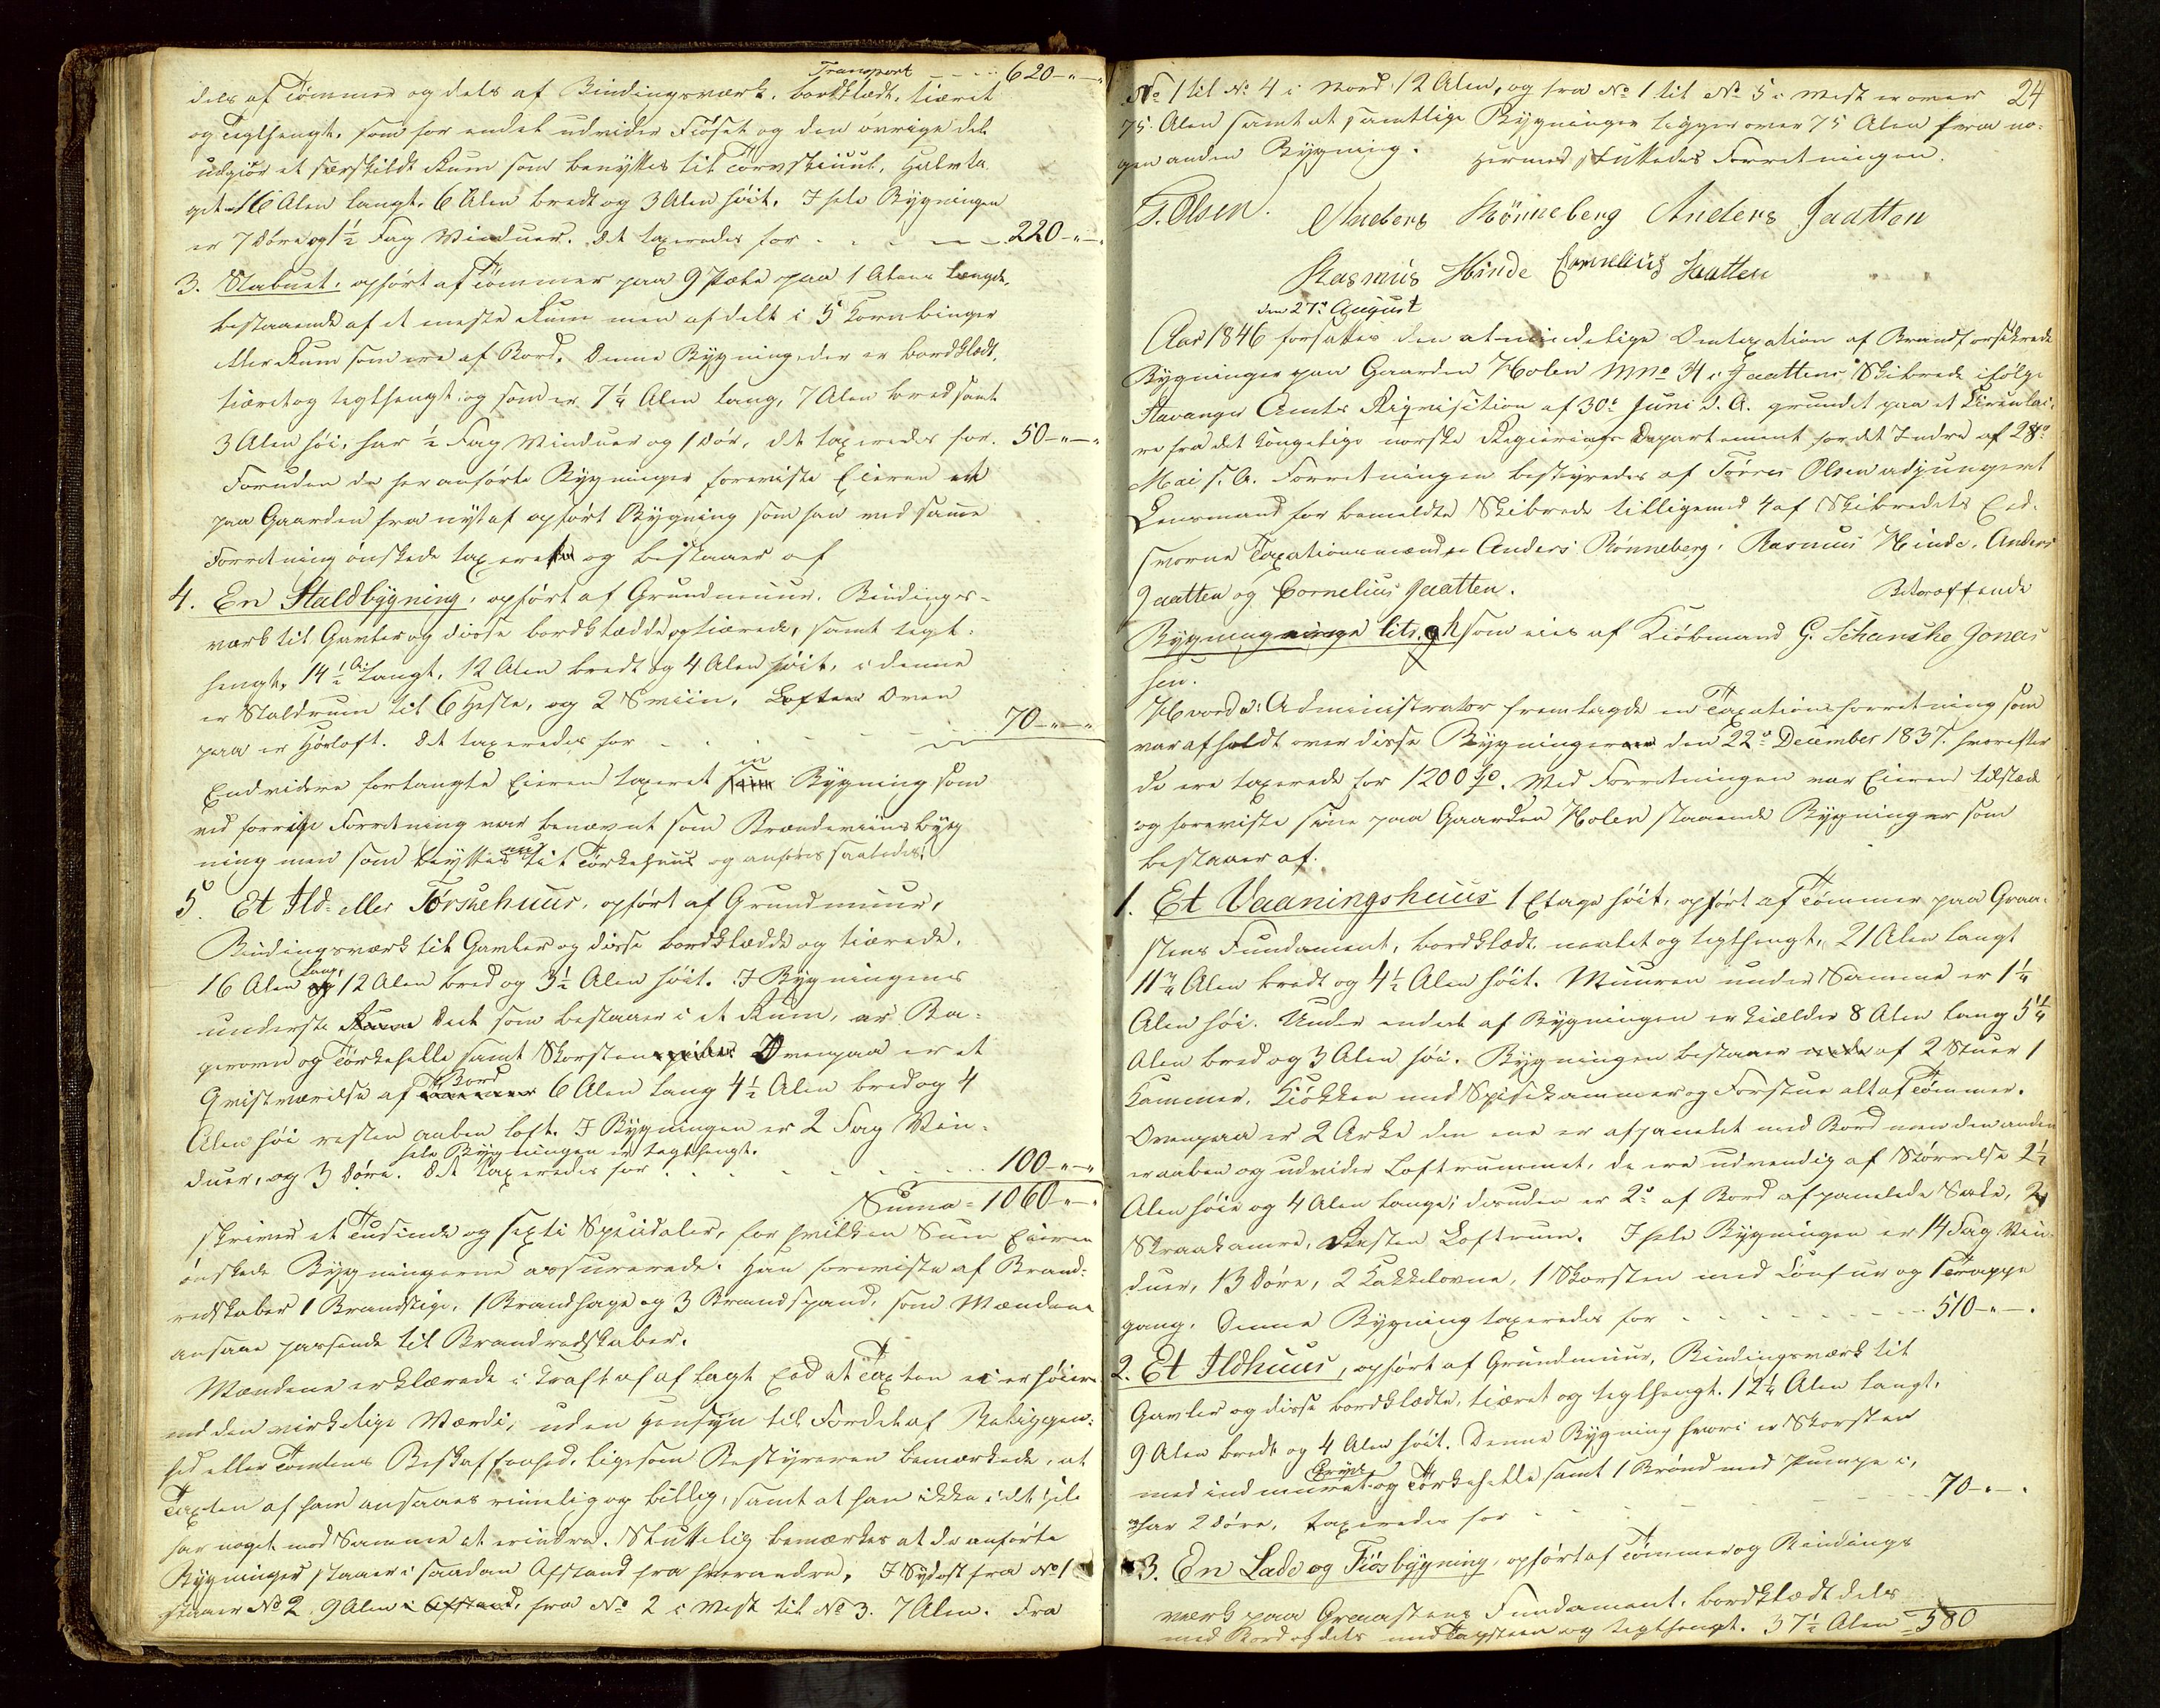 Transport - - - 620-"-"
dels af Tømmer og dels af Bindingsværk, bordklædt, tiæret
og tegthengt, som for endel udvider Fiøset og den øvrige del
udgiør et særskildt Rum som benyttes til Tørvskiuul, Halvta
get 16 Alen langt, 6 Alen bredt og 3 Alen høit. I hele Bygningen
er 7 Døre og 1½ Fag Vinduer. Det taxeredes for - - - 220-"-"
3. Stabuet, opført af Tømmer paa 9 Pæle paa 1 Alens Længde,
bestaaende af et meste Rum men afdelt i 5 Kornbinger
eller Rum som ere af Bord. Denne Bygning der er bordklædt,
tiæret og tegthengt og som er 7¼ Alen lang, 7 Alen bred samt
3 Alen høi, har ½ Fag Vinduer og 1 Dør, det taxeredes for. 50-"-"
Foruden de her anførte Bygninger foreviste Eieren et
paa Gaarden fra nyt af opført Bygning som han ved samme
Forretning ønskede taxeret og bestaaer af
4. En Staldbygning, opført af Grundmuur, Bindings-
værk til Gavler og disse bordklædde og tiærede, samt tegt-
hengt, 14½ Al. langt, 12 Alen bredt og 4 Alen høit, i denne
er Staldrum til 6 Heste, og 2 Sviin, Loften Oven
paa er Høeloft. Det taxeredes for - - - 70-"-"
Endvidere forlangte Eieren taxeret en Bygning som
ved forrige Forretning var benævnt som Brændeviinsbyg
ning men som benyttes nu til Tørkehuus og anføres saaledes:
5. Et Ild- eller Tørkehuus, opført af Grundmuur,
Bindingsværk til Gavler og disse bordklædde og tiærede,
16 Alen lang, 12 Alen bred og 3½ Alen høit. I Bygningens
underste Deel som bestaaer i et Rum, er Ba-
gerovn og Tørkehelle samt Skorsteenspibe. Ovenpaa er et
Qvistværelse af Bord 6 Alen lang 4½ Alen bred og 4
Alen høi resten aaben loft. I Bygningen er 2 Fag Vin-
hele Bygningen er tegthengt.
duer, og 3 Døre. Det taxeredes for - - - 100-"-"
Suma = 1060-"-"
skriver et Tusinde og sexti Speciedaler, for hvilken Sum Eieren
ønskede Bygningerne assurerede. Han foreviste af Brand-
redskaber 1 Brandstige, 1 Brandhage og 3 Brandspand, som Mændene
ansaae passende til Brandredskaber.
Mændene erklærede i Kraft af aflagt Eed at Taxten ei er høiere
end den virkelige Værdi, uden Hensyn til Fordel af Beliggen-
hed eller Tomtens Beskaffenhed, ligesom Bestyreren bemærkede, at
Taxten af ham ansaaes rimelig og billig, samt at han ikke i det Hele
har noget mod Samme at erindre. Sluttelig bemærkes at de anførte
Bygninger staaer i saadan Afstand fra hverandre, I Sydost fra No 1
staaer No 2, 9 Alen i Afstand, fra No 2 i Vest til No 3. 7 Alen. Fra
24
No 1 til No 4 i Nord 12 Alen, og fra No 1 til No 5 i Vest er over
75 Alen samt at samtlige Bygninger ligger over 75 Alen fra no-
gen anden Bygning. Hermed sluttedes Forretningen.
T. Olsen. Anders Rønneberg Anders Jaatten
Rasmus Hinde Cornelius Jaatten
den 27de August
Aar 1846 forsattes den almindelige Omtaxation af Brandforsikrede
Bygninger paa Gaarden Holen Mno 34 i Jaattens Skibrede ifølge
Stavanger Amts Reqvisition af 30te Juni d. A. grundet paa et Circulai-
re fra det Kongelige norske Regierings Departement for det Indre af 28de
Mai s. A. Forretningen bestyredes af Tørres Olsen adjungert
Lensmand for bemeldte Skibrede tilligemed 4 af Skibredets Eed-
svorne Taxationsmænd Anders Rønneberg, Rasmus Hinde, Anders
Jaatten og Cornelius Jaatten.
Betræffende
Bygning litr. h som eies af Kiøbmand G. Schanche Jonas
sen.
Administrator fremlagde en Taxationsforretning som
var afholdt over disse Bygninger den 22de December 1837. hvorefter
de ere taxerede for 1200 Sp. Ved Forretningen var Eieren tilstæde
og foreviste sine paa Gaarden Holen staaende Bygninger som
bestaaer af.
1. Et Vaaningshuus 1 Etage høit, opført af Tømmer paa Graa-
stens Fundament, bordklædt, malet og tegthengt, 21 Alen langt
11¾ Alen bredt og 4½ Alen høit. Muuren under Samme er 1¼
Alen høi. Under endeel af Bygningen er Kielder 8 Alen lang 5¼
Alen bred og 3 Alen høi. Bygningen bestaaer af 2 Stuer 1
Kammer, Kiøkken med Spisekammer og Forstue alt af Tømmer.
Ovenpaa er 2 Arke den ene er afpanelet med Bord men den anden
er aaben og udvider Loftrummet, de ere udvendig af Størrelse 2½
Alen høie og 4 Alen lange; desuden er 2de af Bord afpanelede Sale, 2
Skraakamre, Resten Loftrum. I hele Bygningen er 14 Fag Vin-
duer, 13 Døre, 2 Kakkelovne, 1 Skorsten med Comfur og 1 Trappe
gang. Denne Bygning taxeredes for - - - 510-"-"
2. Et Ildhuus, opført af Grundmuur, Bindingsværk til
Gavler og disse bordklædte, tiæret og tegthengt. 12¼ Alen langt,
9 Alen bredt og 4 Alen høit. Denne Bygning hvori er Skorsten
med indmuret Gryde og Tørkehelle samt 1 Brønd med Pumpe i,
har 2 Døre, taxeredes for - - - 70-"-"
3. En Lade og Fiøsbygning, opført af Tømmer og Bindings
værk paa Graastens Fundament, bordklædt dels
med Bord og dels med Tagsteen og tegthengt. 37½ Alen - 580